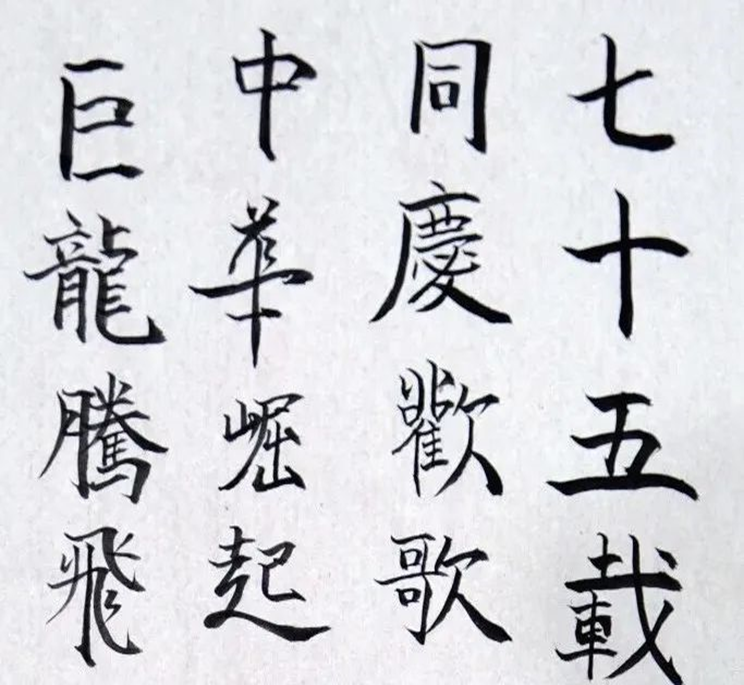 七十五載
同慶歡歌
中華崛起
巨龍騰飛